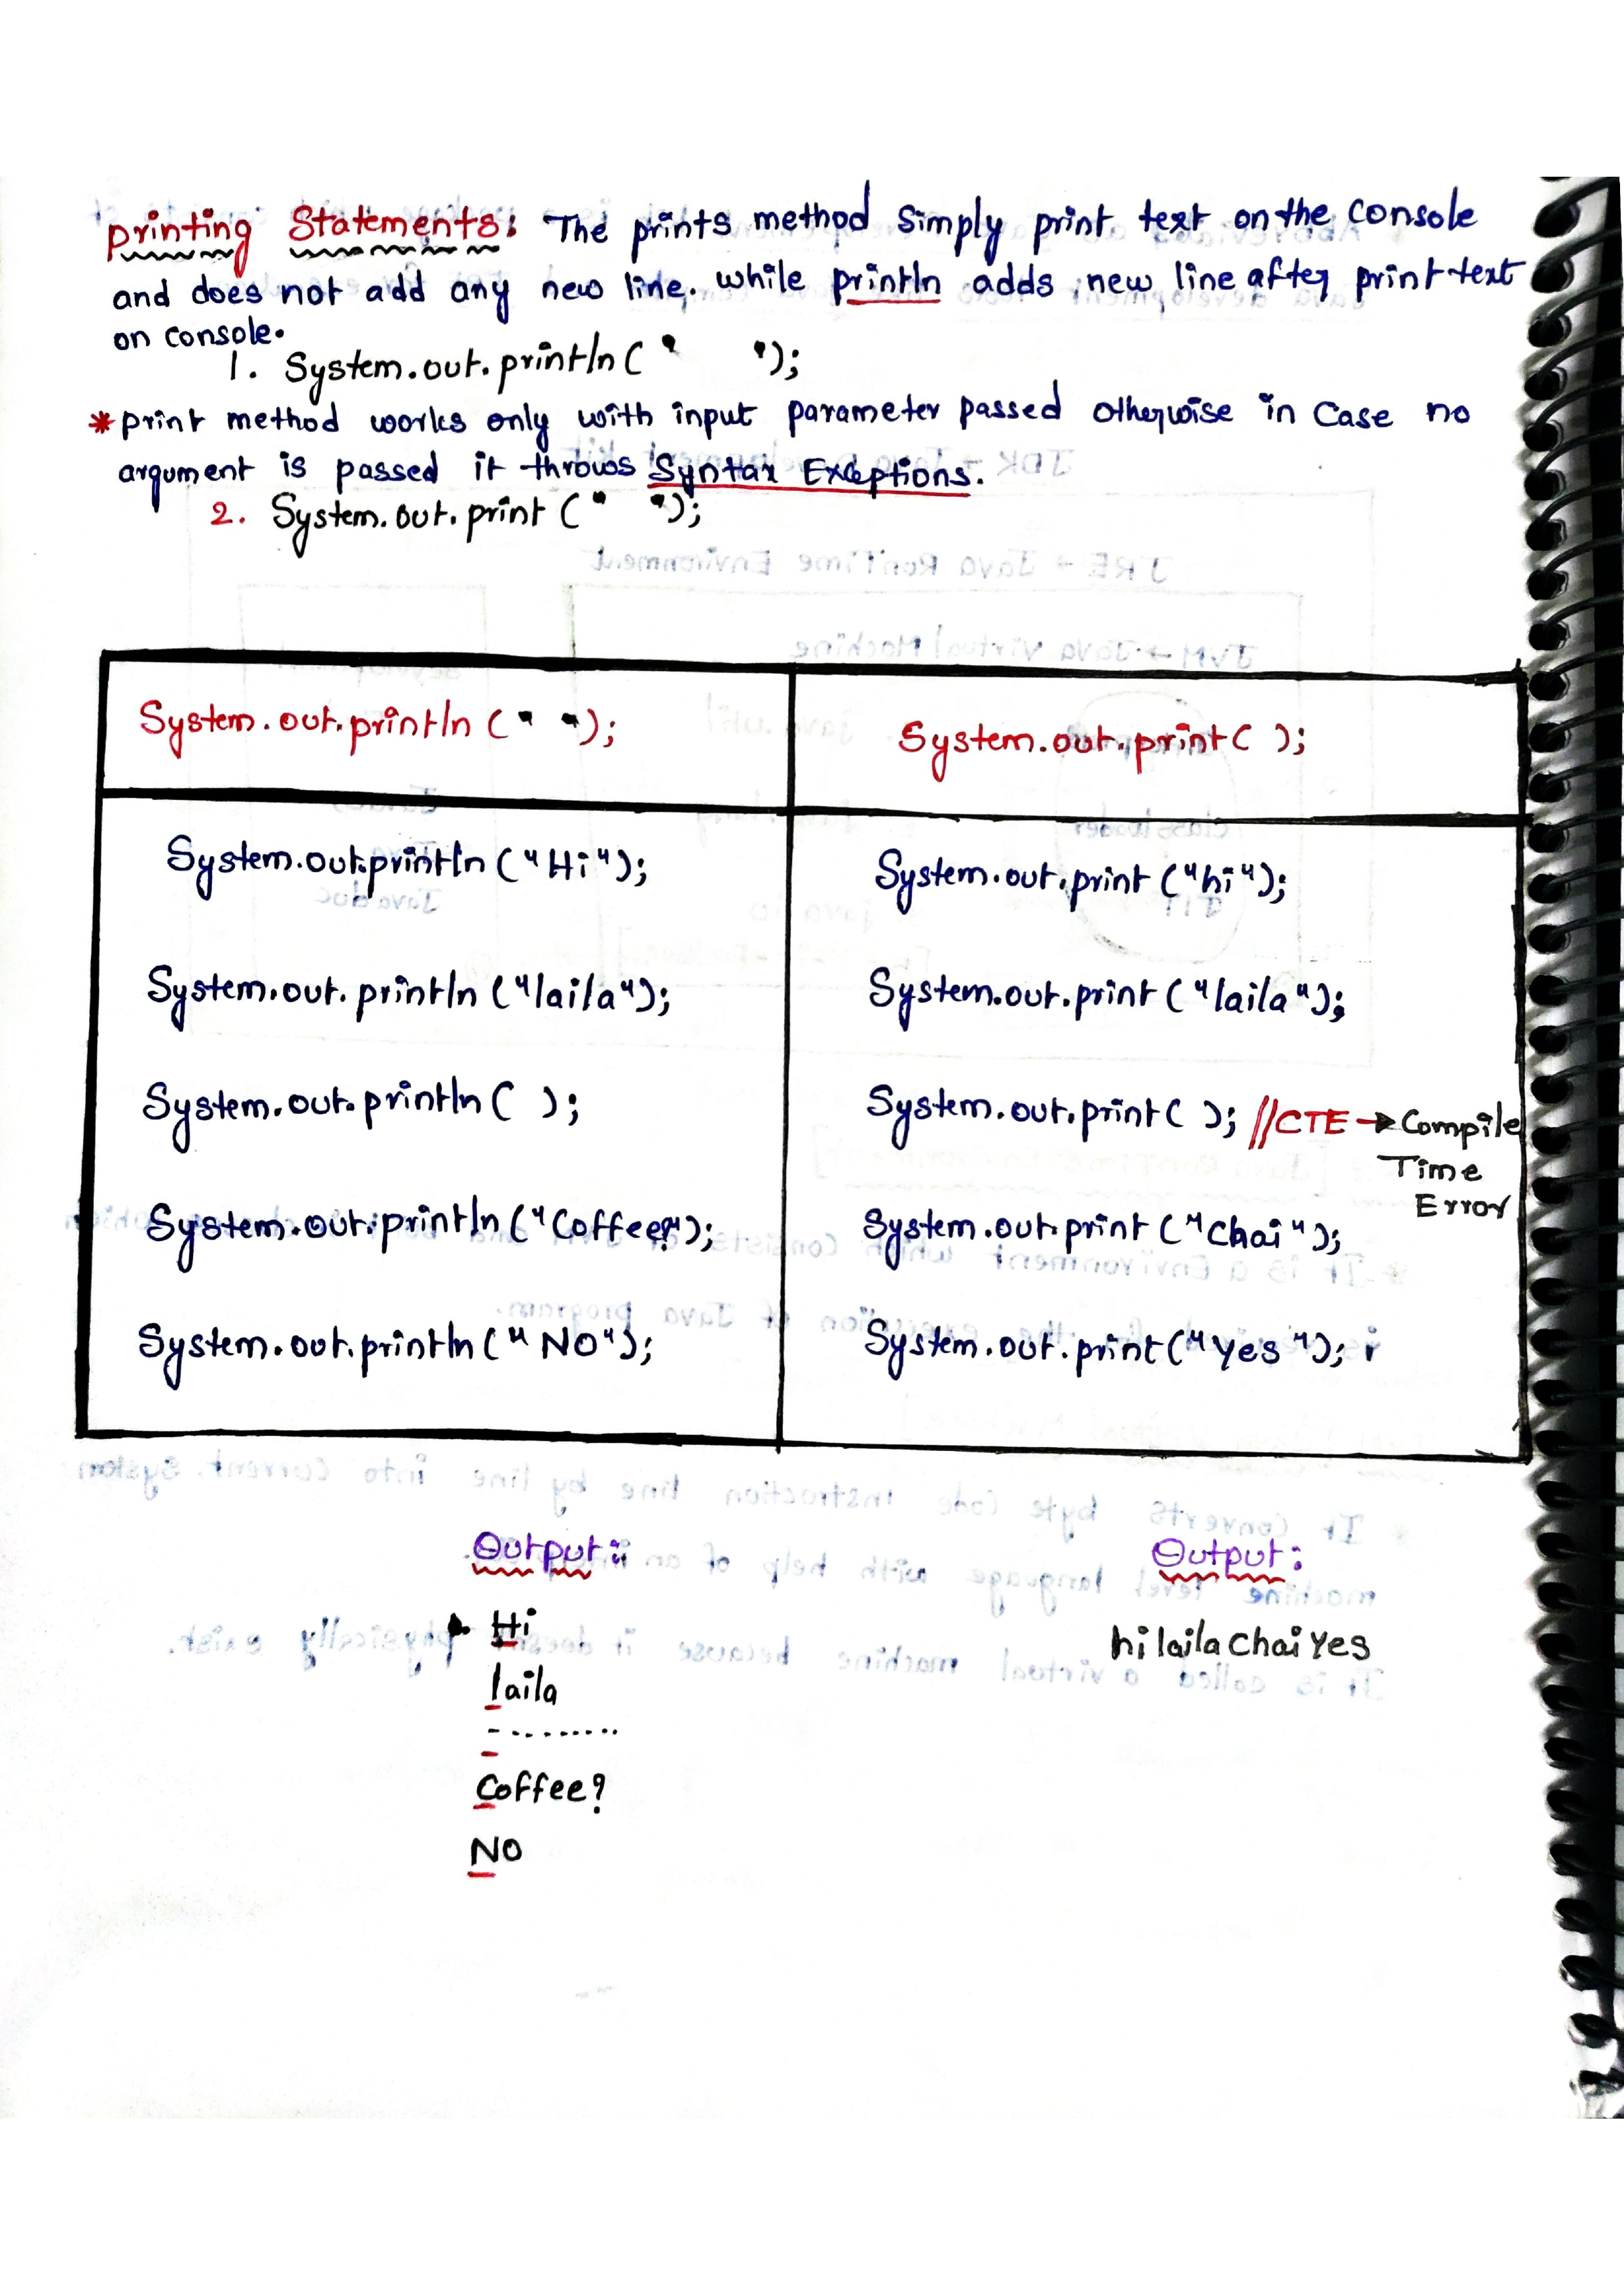 Printing Statements: The prints method simply print text on the console
and does not add any new line. while println adds new line after print text
on console.
1. System.out.println(" ");
* print method works only with input parameter passed otherwise in Case no
argument is passed it throws Syntax Exceptions.
2. System.out.print(" ");
System.out.println(" "); System.out.print( );
System.out.println("Hi"); System.out.print("hi");
System.out.println("laila"); System.out.print("laila");
System.out.println( ); System.out.print( ); //CTE → Compile
Time
Error
System.out.println("Coffee?"); System.out.print("Chai");
System.out.println("NO"); System.out.print("Yes");
Output: Output:
Hi hilailaChaiYes
laila
- ........
Coffee?
NO